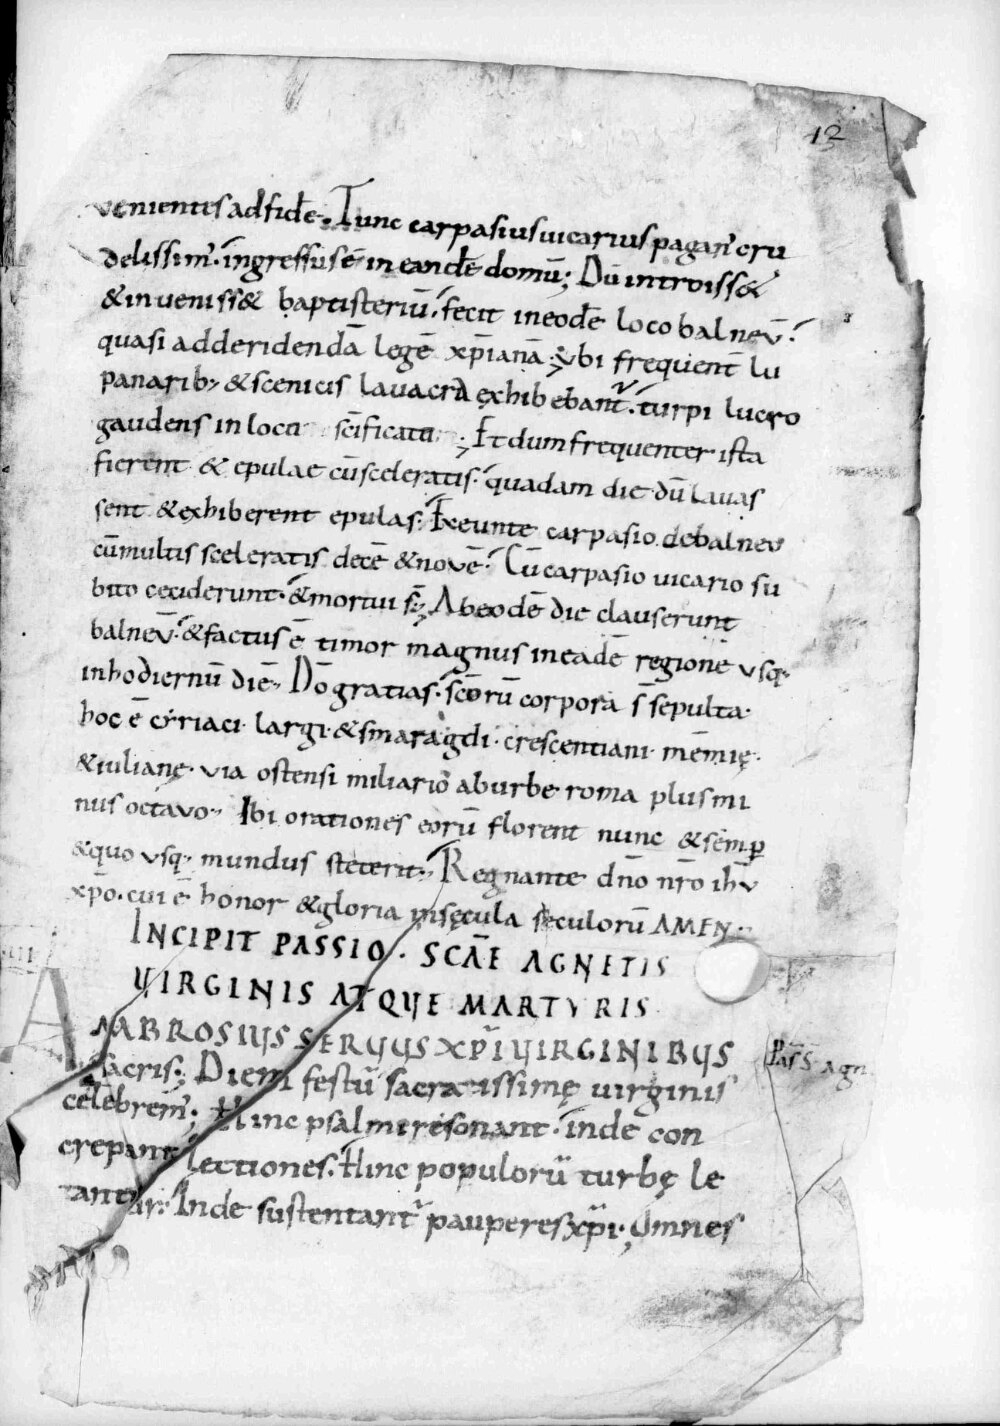 12
venientes ad fidē. Tunc carpasius vicarius pagan' cru
delissim'. ingressus ē in eandē domū; Dū introiss&
& inveniss& baptisteriū. fecit in eodē loco balneū.
quasi ad deridendā legē xp̄ianā; ubi frequent̄ lu
panarib; & scenicis lavacra exhibebant'. turpi lucro
gaudens in loco scīficato; Et dum frequenter ista
fierent & epulae cū sceleratis. quadam die dū lavas
sent & exhiberent epulas. Exeunte carpasio de balneo
cū multis sceleratis decē & novē. Cū carpasio vicario su
bito ceciderunt. & mortui s̄; Ab eo dē die clauserunt
balneū. & factus ē timor magnus in eadē regione usq;
in hodiernū diē. Dō gratias. scōrū corpora s̄ sepulta.
hoc ē cyriaci. largi. & smaragdi. crescentiani. mēmię.
& iulianę. via ostensi miliario ab urbe roma plus mi
nus octavo. Ibi orationes eorū florent nunc & semp̄
& quo usq; mundus steterit. Regnante dn̄o nr̄o ihū
xp̄o. cui ē honor & gloria in sęcula seculorū AMEN.
INCIPIT PASSIO. SCĀE AGNETIS
VIRGINIS ATQUE MARTYRIS
AMBROSIUS SERVUS XP̄I VIRGINIBUS
sacris; Diem festū sacratissimę virginis
celebrem'; Hinc psalmi resonant. inde con
crepant lectiones. Hinc populorū turbę le
tantur. Inde sustentant' pauperes xp̄i. Omnes
Pass̄ S agn